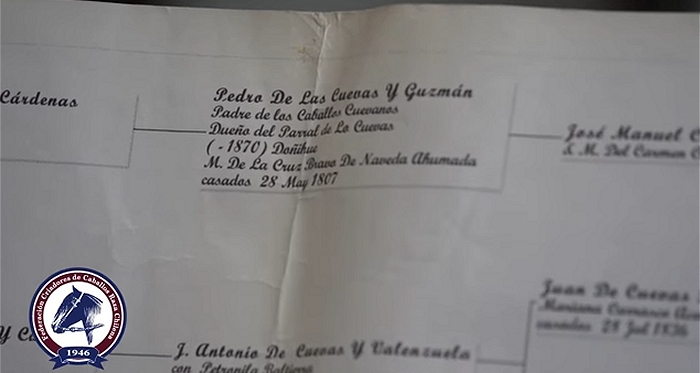 Cárdenas
Pedro De Las Cuevas Y Guzmán
Padre de los Caballos Cuevanos
Dueño del Parral de Lo Cuevas
( - 1870) Doñihue
M. De La Cruz Bravo De Naveda Ahumada
casados 28 May 1807
José Manuel
& M. Del Carmen
Juan De Cuevas
Mariana Carrasco
casados 28 Jul 1836
Y
J. Antonio De Cuevas Y Valenzuela
con Petronila
Federación Criadores de Caballos Raza Chilena
1946